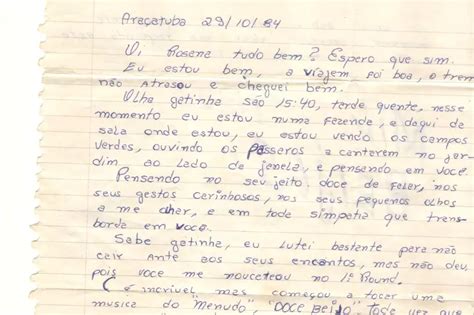 Araçatuba 29/10/84
Oi Rosana tudo bem? Espero que sim.
Eu estou bem, a viajem foi boa, o trem
não atrasou e cheguei bem.
Olha gatinha são 15:40, tarde quente, nesse
momento eu estou numa fazenda, e daqui da
sala onde estou, eu estou vendo os campos
verdes, ouvindo os pássaros a cantarem no jar-
dim ao lado da janela, e pensando em você.
Pensando no seu jeito doce de falar, nos
seus gestos carinhosos, nos seus pequenos olhos
a me olhar, e em toda simpatia que trans-
borda em você.
Sabe gatinha, eu lutei bastante para não
cair ante aos seus encantos, mas não deu,
pois você me nocauteou no 1º Round.
É incrível mas começou a tocar uma
musica do "menudo", "DOCE BEIJO". Toda vez que